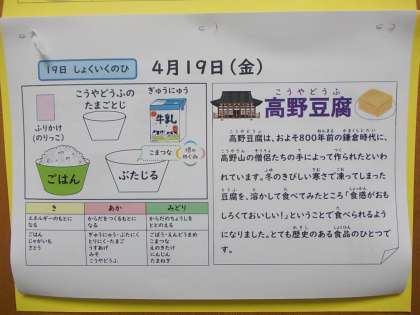 19日 しょくいくのひ
4月19日(金)
こうやどうふの
たまごとじ
ぎゅうにゅう
牛乳
ふりかけ
(のりっこ)
こまつな
ごはん
ぶたじる
き
あか
みどり
エネルギーのもとに
なる
からだをつくるもとに
なる
からだのちょうしを
ととのえる
ごはん
じゃがいも
さとう
ぎゅうにゅう・ぶたにく
とりにく・たまご
うすあげ
みそ
こうやどうふ
ごぼう・えんどうまめ
こまつな
えのきたけ
にんじん
たまねぎ
こうやどうふ
高野豆腐
高野豆腐は、およそ800年前の鎌倉時代に、
高野山の僧侶たちの手によって作られたといわ
れています。冬のきびしい寒さで凍ってしまった
豆腐を、溶かして食べてみたところ「食感がおも
しろくておいしい!」ということで食べられるよう
になりました。とても歴史のある食品のひとつで
す。